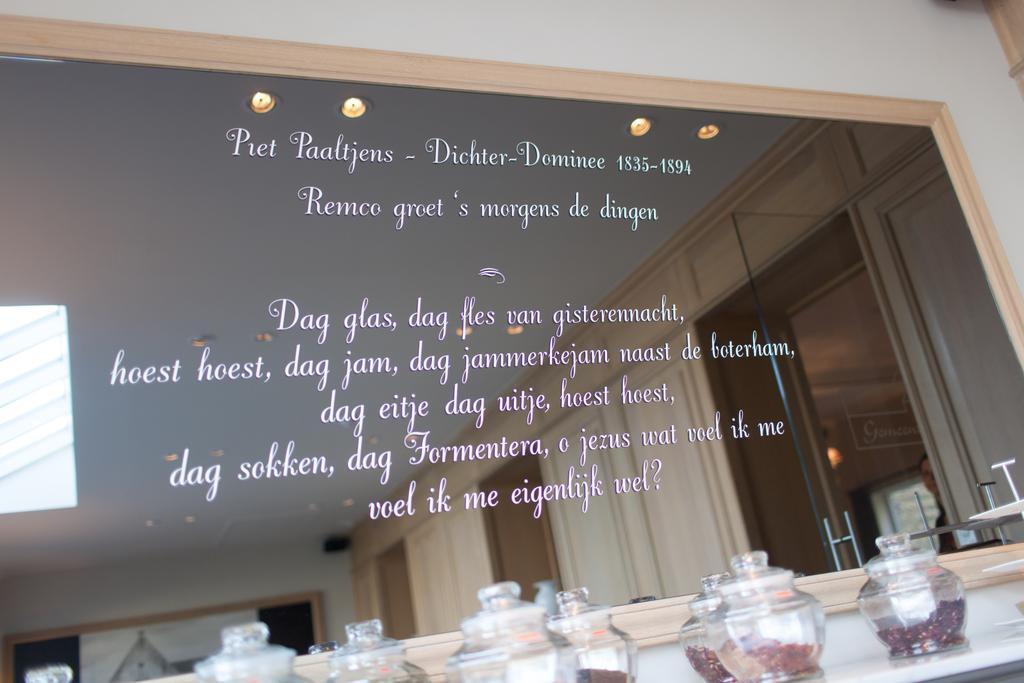 Piet Paaltjens - Dichter-Dominee 1835-1894
Remco groet 's morgens de dingen
Dag glas, dag fles van gisterennacht,
hoest hoest, dag jam, dag jammerkejam naast de boterham,
dag eitje dag uitje, hoest hoest,
dag sokken, dag Formentera, o jezus wat voel ik me
voel ik me eigenlijk wel?